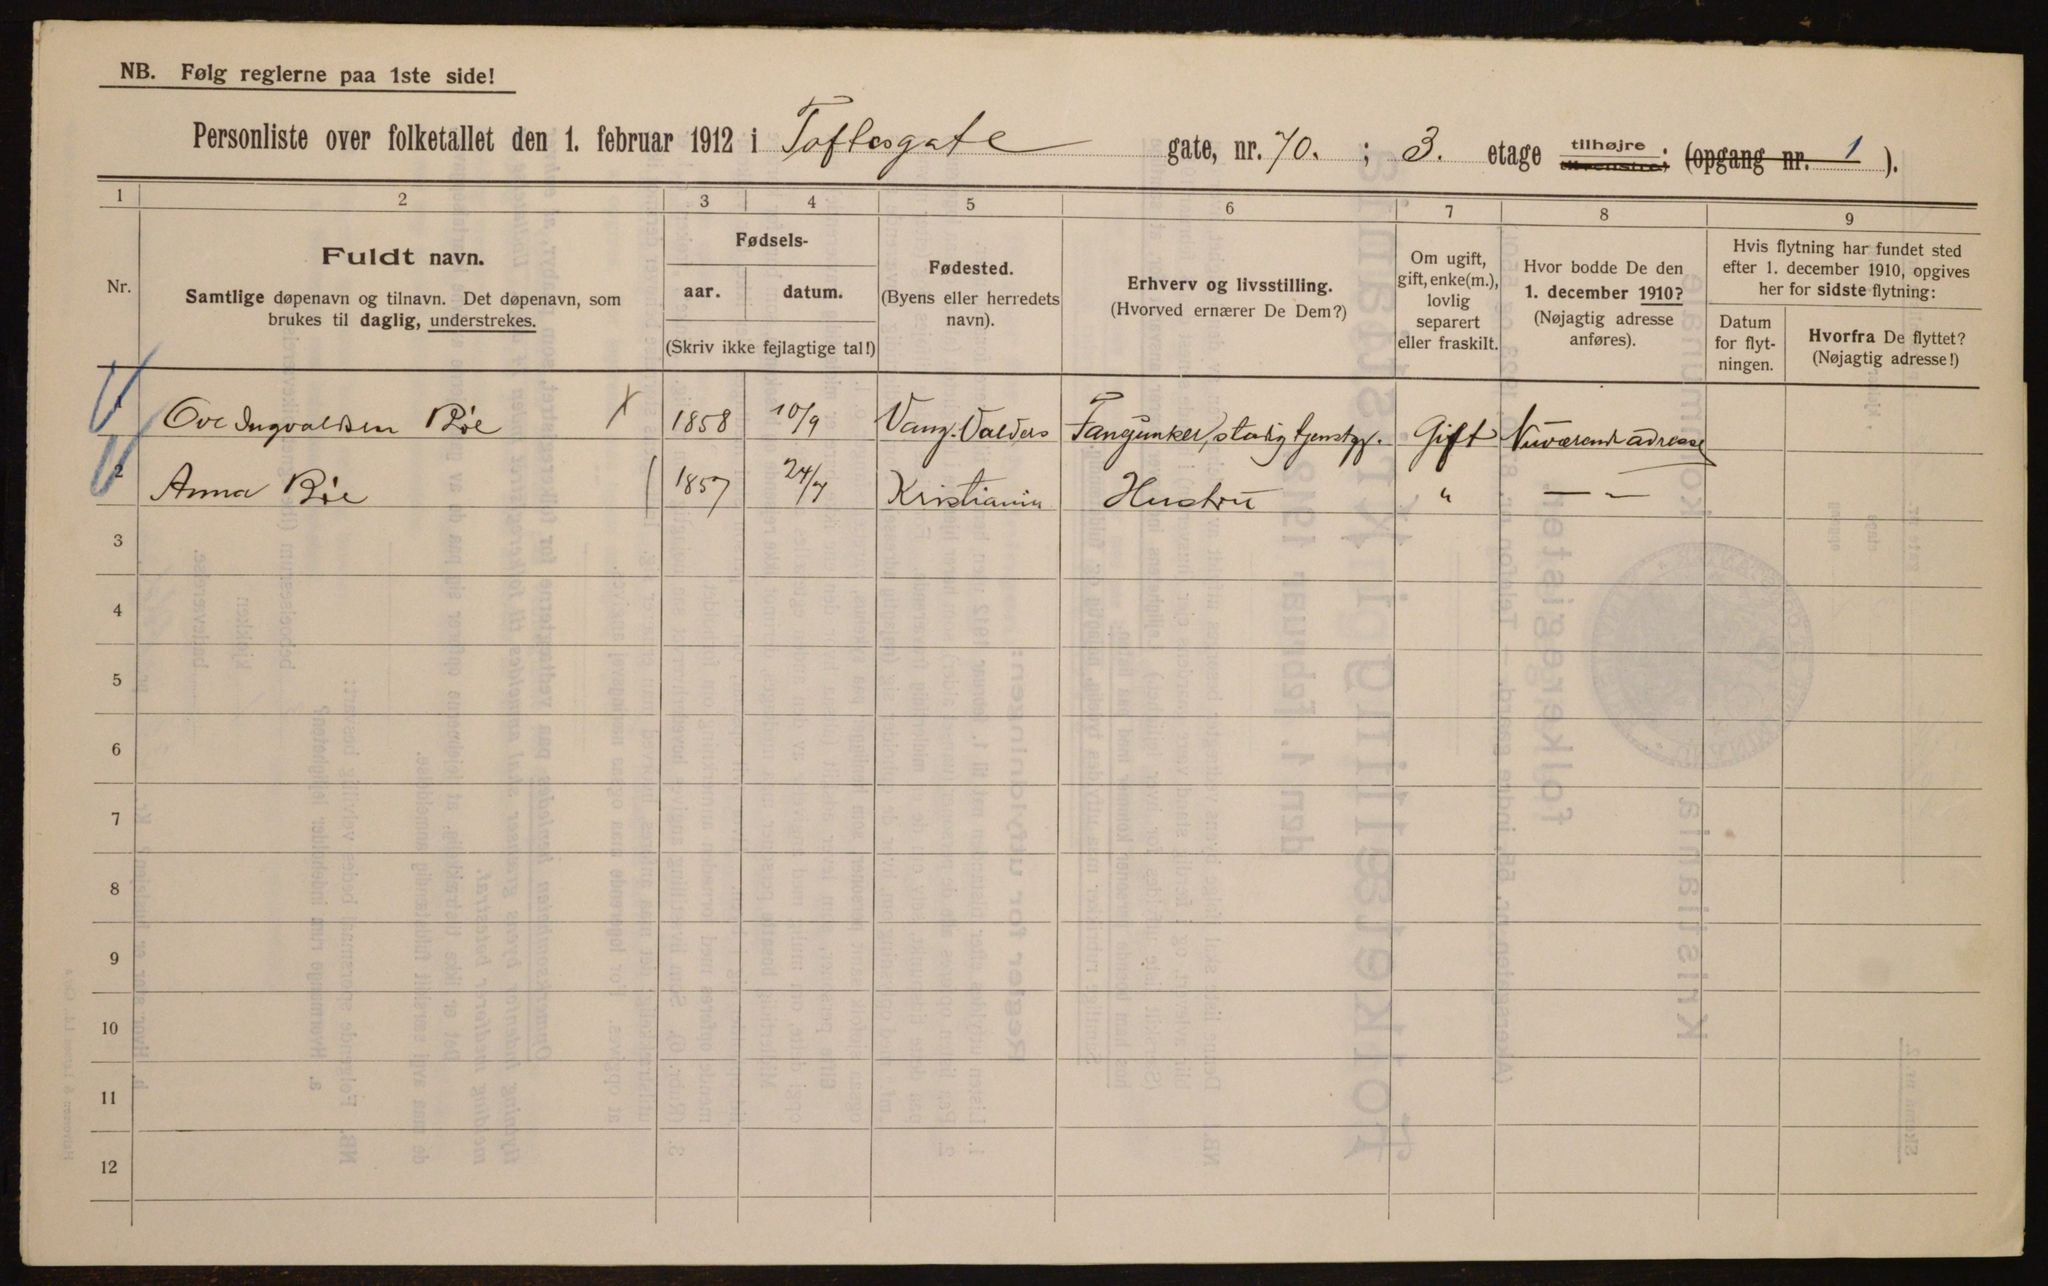 NB. Følg reglerne paa 1ste side!
Personliste over folketallet den 1. februar 1912 i Toftesgate gate, nr. 70. ; 3. etage tilhøjre tilvenstre; (opgang nr. 1 ).
1 2 3 4 5 6 7 8 9
Nr.
Fuldt navn.
Samtlige døpenavn og tilnavn. Det døpenavn, som
brukes til daglig, understrekes.
Fødsels-
aar. datum.
(Skriv ikke fejlagtige tal!)
Fødested.
(Byens eller herredets
navn).
Erhverv og livsstilling.
(Hvorved ernærer De Dem?)
Om ugift,
gift, enke(m.),
lovlig
separert
eller fraskilt.
Hvor bodde De den
1. december 1910?
(Nøjagtig adresse
anføres).
Hvis flytning har fundet sted
efter 1. december 1910, opgives
her for sidste flytning:
Datum
for flyt-
ningen.
Hvorfra De flyttet?
(Nøjagtig adresse!)
1 Ove Ingvaldsen Bøe X 1858 10/9 Vang. Valders Gift Nuværende adresse
2 Anna Bøe 1857 24/7 Kristiania Hustru " — —
3
4
5
6
7
8
9
10
11
12